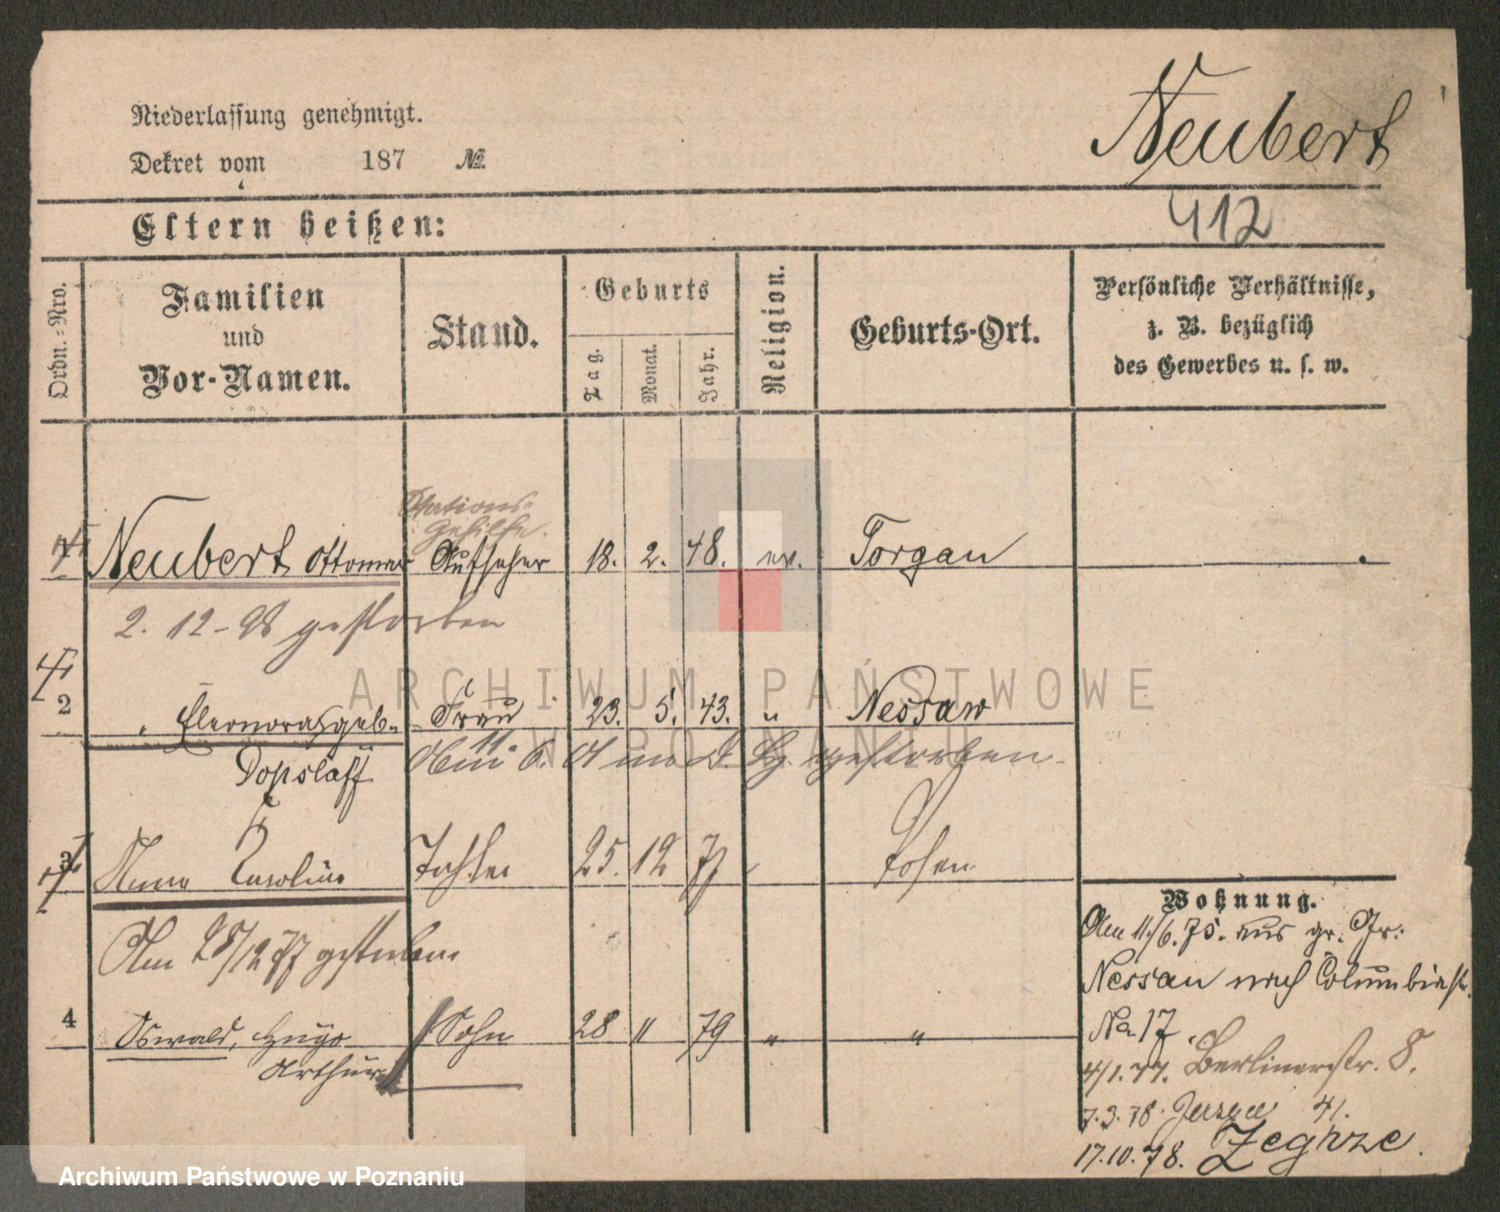 Niederlassung genehmigt.
Dekret vom 187 №
Neubert
412
Eltern heißen:
Ordn.-Nro.
Familien und Vor-Namen.
Stand.
Geburts
Tag.
Monat.
Jahr.
Religion.
Geburts-Ort.
Persönliche Verhältnisse,
z. B. bezüglich
des Gewerbes u. s. w.
Stations-
Gehilfe.
1 Neubert Ottomar Aufseher 18. 2. 48. ev. Torgau
2. 12-98 gestorben
2 " Eleonora geb. Frau 23. 5. 43. " Nessaw
Dopslaff
11. 6. gestorben
3 Anna Karoline Tochter 25. 12 77 Posen
Am 28/12 77 gestorben
4 Oswald, Hugo Sohn 28 " 79 " "
Arthur
Wohnung.
Am 11./6.75. aus gr. Gr:
Nessau nach Columbiastr.
No 17.
4/1.77. Berlinerstr. 8.
7.3.78. Jersea 41.
17.10.78. Zegrze.
ARCHIWUM PAŃSTWOWE
W POZNANIU
Archiwum Państwowe w Poznaniu